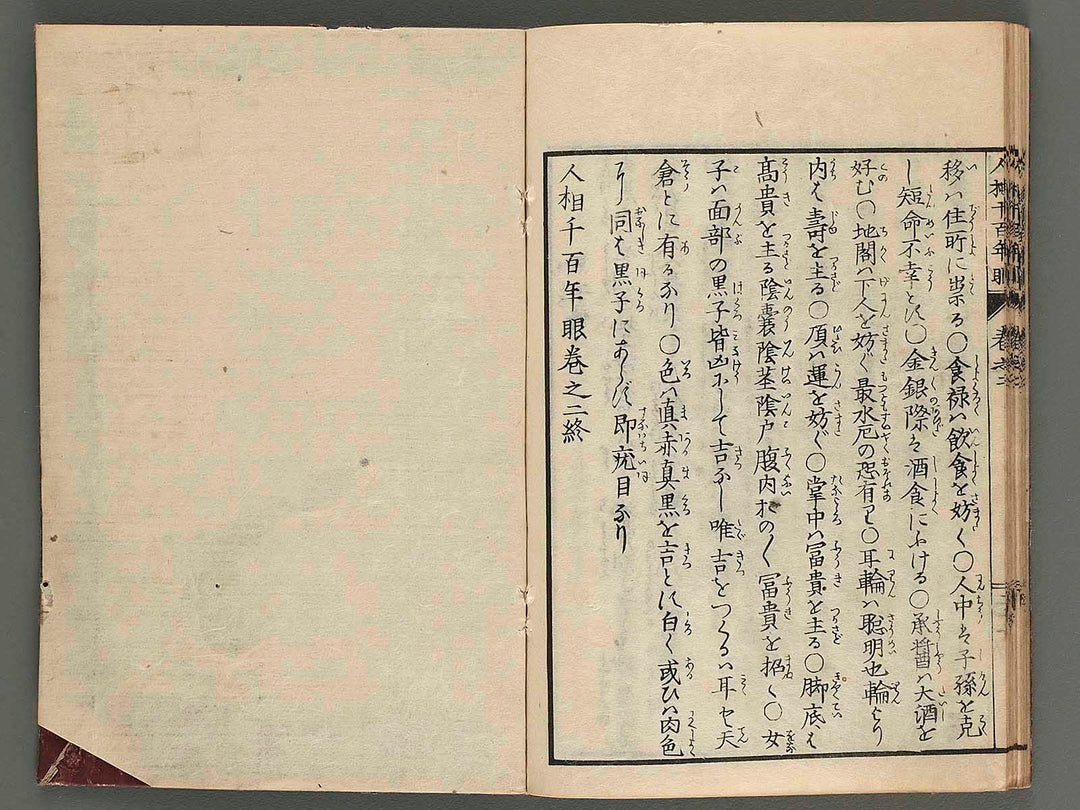 人相千百年眼 卷之二
移ハ住所に祟る〇食禄ハ飲食を妨く〇人中は子孫を克
し短命不幸とす〇金銀際は酒食にふける〇承醤ハ大酒を
好む〇地閣ハ下人を妨ぐ最水厄の恐有り〇耳輪ハ聡明也輪より
内は壽を主る〇頂ハ運を妨ぐ〇掌中ハ冨貴を主る〇脚底は
髙貴を主る陰嚢陰茎陰戸腹内おのく冨貴を招く〇女
子ハ面部の黒子皆凶にして吉なし唯吉をつくるハ耳と天
倉とに有るなり〇色ハ真赤真黒を吉とす白く或ひハ肉色
に同は黒子にあらず即疣目なり
人相千百年眼卷之二終